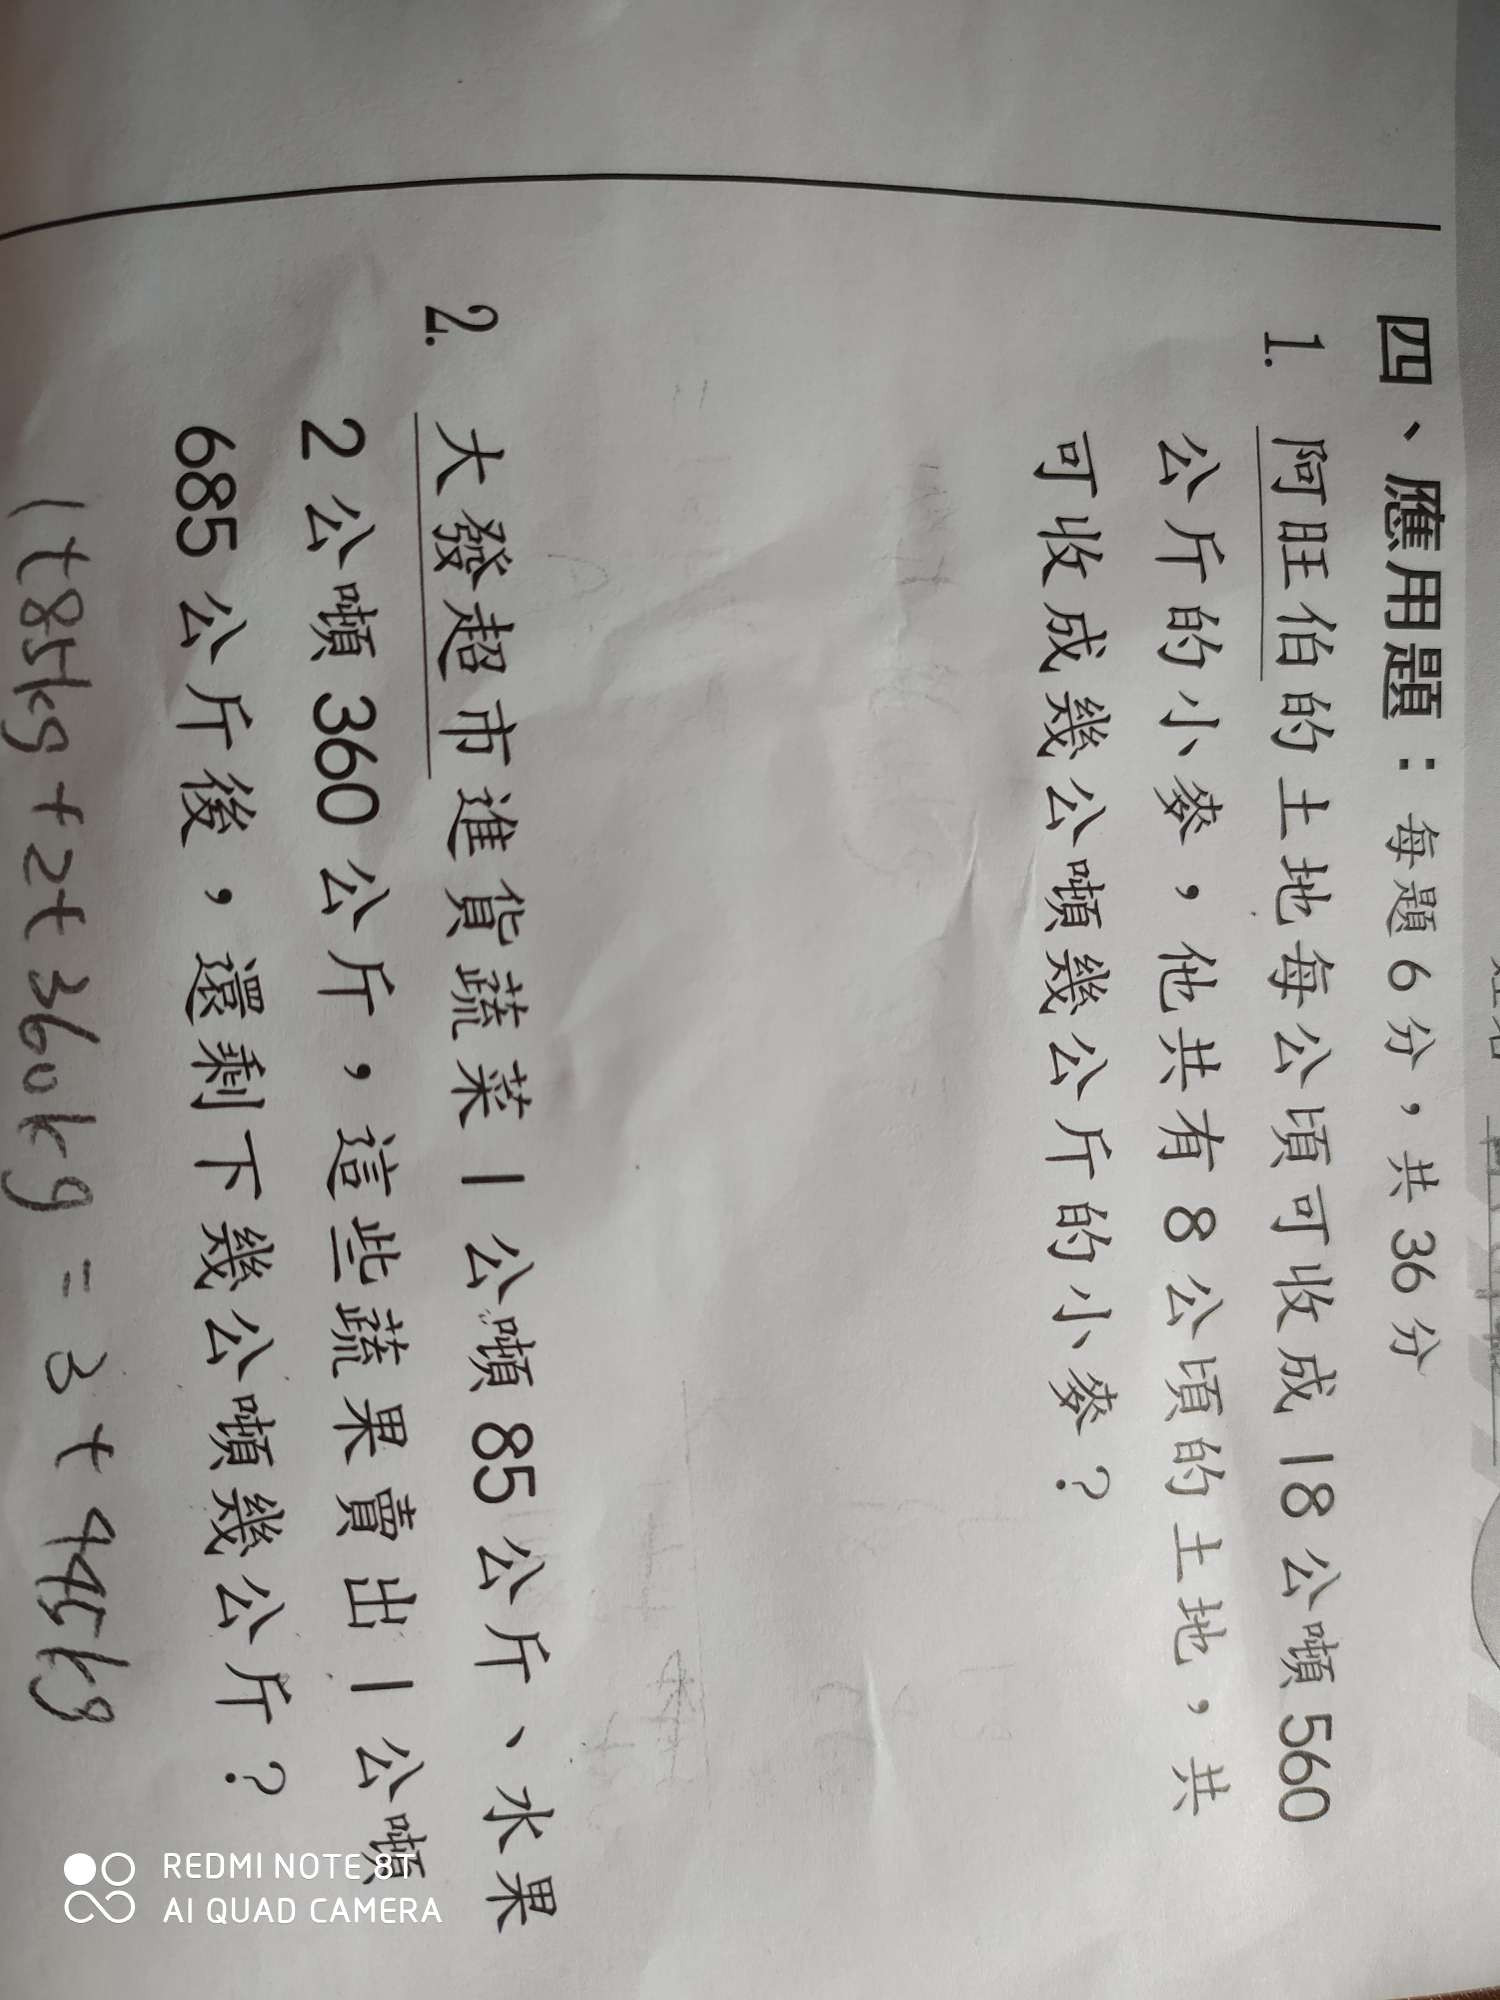 四、應用題：每題6分，共36分
1. 阿旺伯的土地每公頃可收成18公噸560
公斤的小麥，他共有8公頃的土地，共
可收成幾公噸幾公斤的小麥？
2. 大發超市進貨蔬菜1公噸85公斤、水果
2公噸360公斤，這些蔬果賣出1公噸
685公斤後，還剩下幾公噸幾公斤？
1t85kg+2t360kg=3t445kg
REDMI NOTE 8T
AI QUAD CAMERA